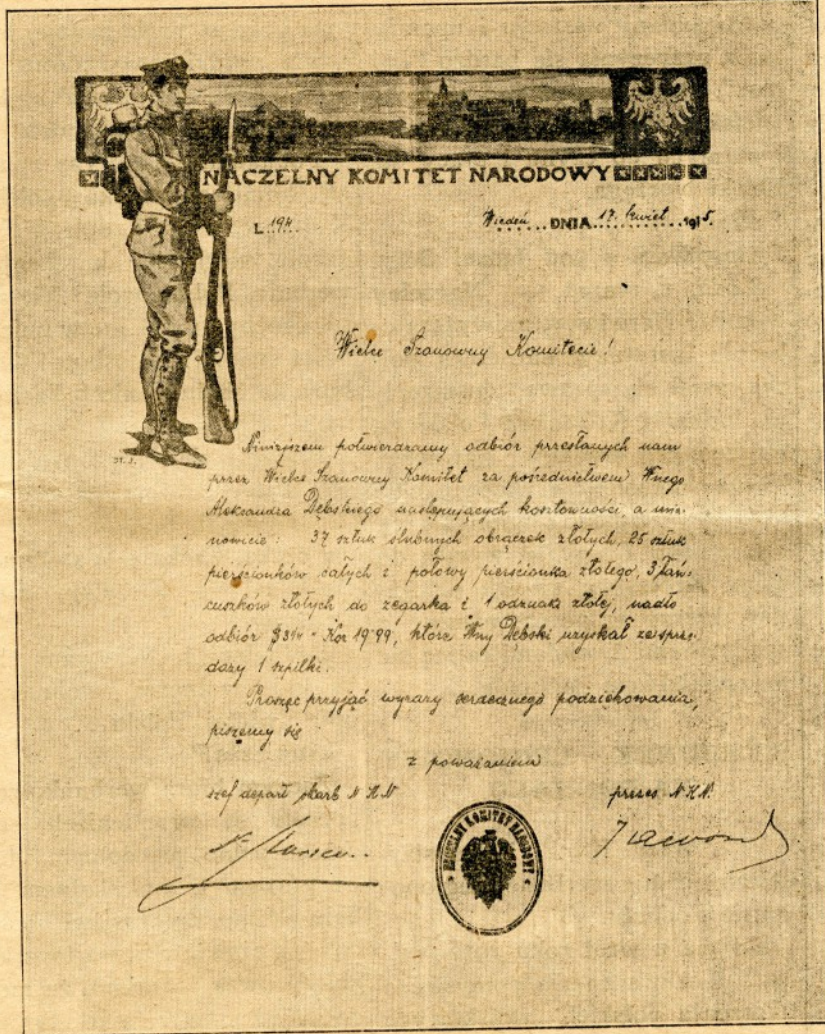 NACZELNY KOMITET NARODOWY
L. 194 Wiedeń DNIA 17. kwiet. 1915.
Wielce Szanowny Komitecie!
Niniejszem potwierdzamy odbiór przesłanych nam
przez Wielce Szanowny Komitet za pośrednictwem Wnego
Aleksandra Dębskiego następujących kosztowności, a mia-
nowicie: 37 sztuk ślubnych obrączek złotych, 25 sztuk
pierścionków całych i połowy pierścionka złotego, 3 łań-
cuszków złotych do zegarka i 1 odznaki złotej, nadto
odbiór Kor 19.99, które Wny Dębski uzyskał ze sprze-
daży 1 szpilki.
Prosząc przyjąć wyrazy serdecznego podziękowania,
piszemy się
z poważaniem
szef depart skarb N.K.N prezes N.K.N.
NACZELNY KOMITET NARODOWY
ST. J.